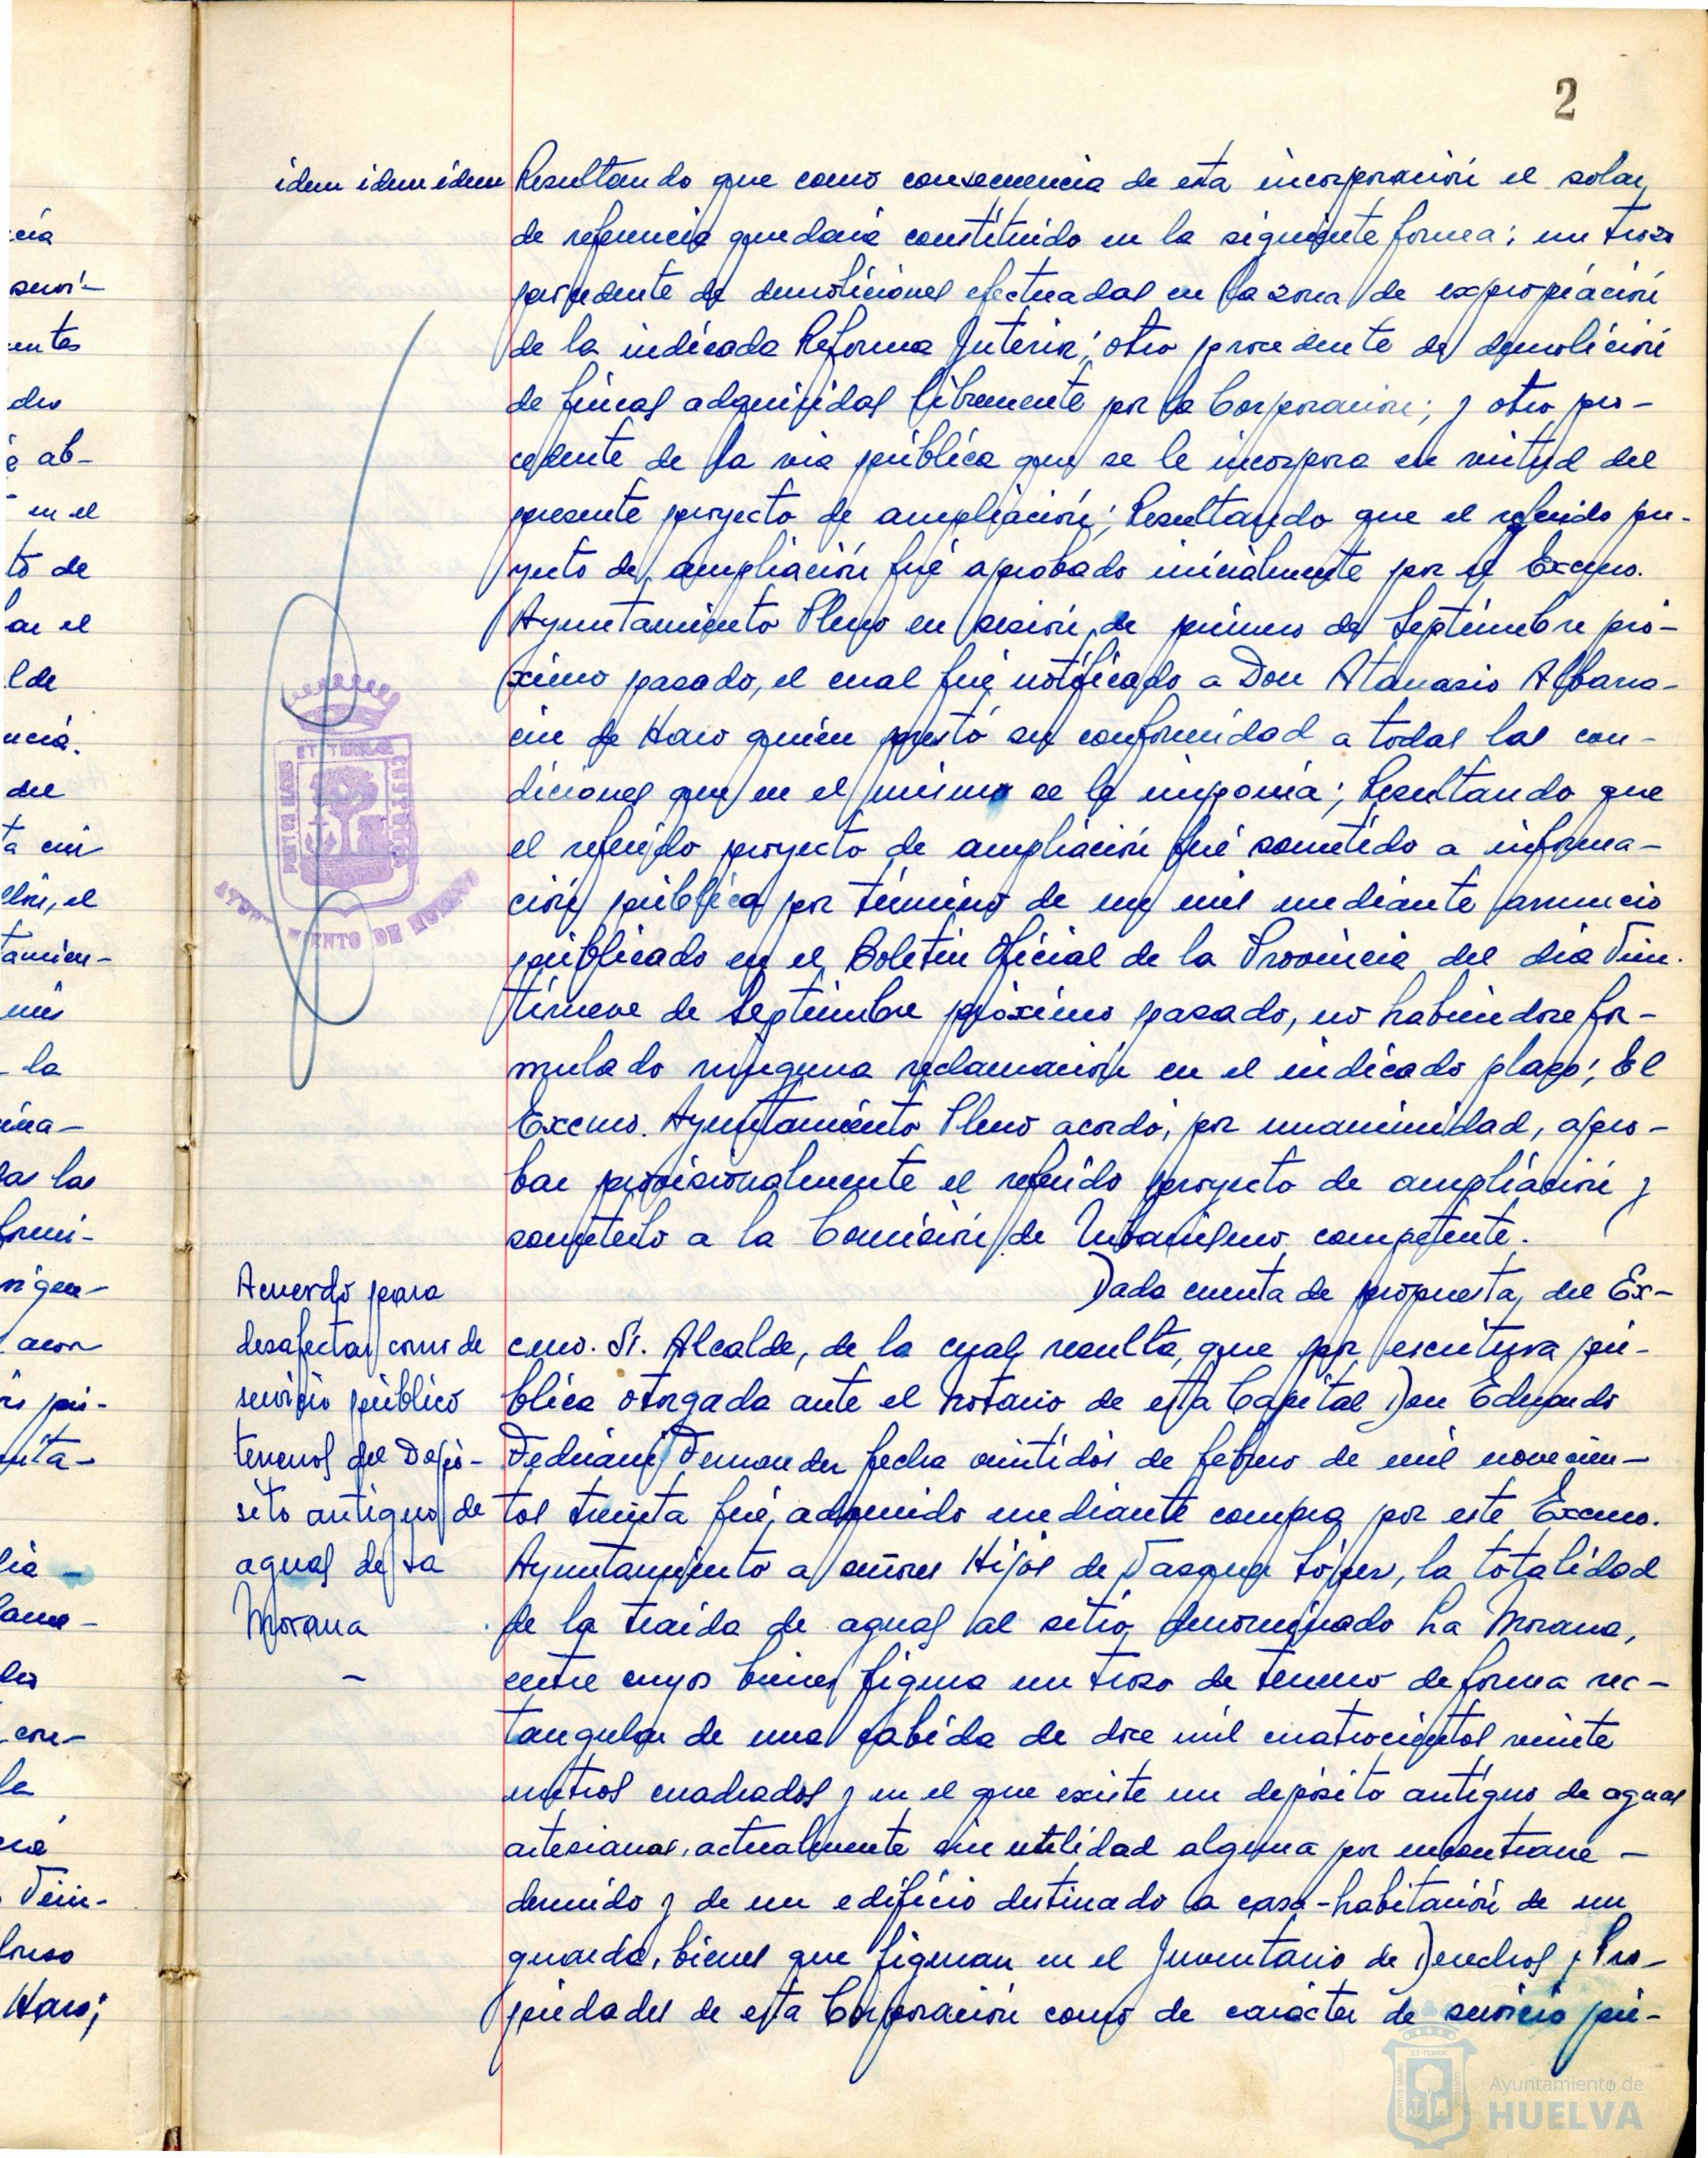 2
idem idem idem
Resultando que como consecuencia de esta incorporación el solar
de referencia quedaría constituido en la siguiente forma: un trozo
procedente de demoliciones efectuadas en la zona de expropiación
de la indicada Reforma Interior; otro procedente de demolición
de fincas adquiridas libremente por la Corporación; y otro pro-
cedente de la vía pública que se le incorpora en virtud del
presente proyecto de ampliación; Resultando que el referido pro-
yecto de ampliación fué aprobado inicialmente por el Excmo.
Ayuntamiento Pleno en sesión de primero de Septiembre pró-
ximo pasado, el cual fué notificado a Don Atanasio Albarra-
cín de Haro quien prestó su conformidad a todas las con-
diciones que en el mismo se le imponía; Resultando que
el referido proyecto de ampliación fué sometido a informa-
ción pública por término de un mes mediante anuncio
publicado en el Boletín Oficial de la Provincia del día Vein-
tinueve de Septiembre próximo pasado, no habiéndose for-
mulado ninguna reclamación en el indicado plazo; El
Excmo. Ayuntamiento Pleno acordó, por unanimidad, apro-
bar provisionalmente el referido proyecto de ampliación y
someterlo a la Comisión de Urbanismo competente.
Acuerdo para
desafectar como de
servicio público
terrenos del Depó-
sito antiguo de
aguas de La
Morana
–
Dada cuenta de propuesta del Ex-
cmo. Sr. Alcalde, de la cual resulta, que por escritura pú-
blica otorgada ante el Notario de esta Capital Don Eduardo
Fedriani Fernandez fecha veintidós de febrero de mil novecien-
tos treinta fué adquirido mediante compra por este Excmo.
Ayuntamiento a señores Hijos de Vazquez López, la totalidad
de la traida de aguas al sitio denominado La Morana,
entre cuyos bienes figura un trozo de terreno de forma rec-
tangular de una cabida de doce mil cuatrocientos veinte
metros cuadrados y en el que existe un depósito antiguo de aguas
artesianas, actualmente sin utilidad alguna por encontrarse –
derruido y de un edificio destinado a casa-habitación de un
guarda, bienes que figuran en el Inventario de Derechos y Pro-
piedades de esta Corporación como de carácter de servicio pú-
cia
servi-
entes
dro
e ab-
en el
to de
lar el
lde
ncia.
del
ta cin
el
tamien-
mis
la
ina-
las las
formi-
rigen-
acor
pú-
nita-
lia –
lame-
con-
la
Vein-
Haro;
PORTUS MARIS ET TERRAE CUSTODIA
AYUNTAMIENTO DE HUELVA
Ayuntamiento de
HUELVA